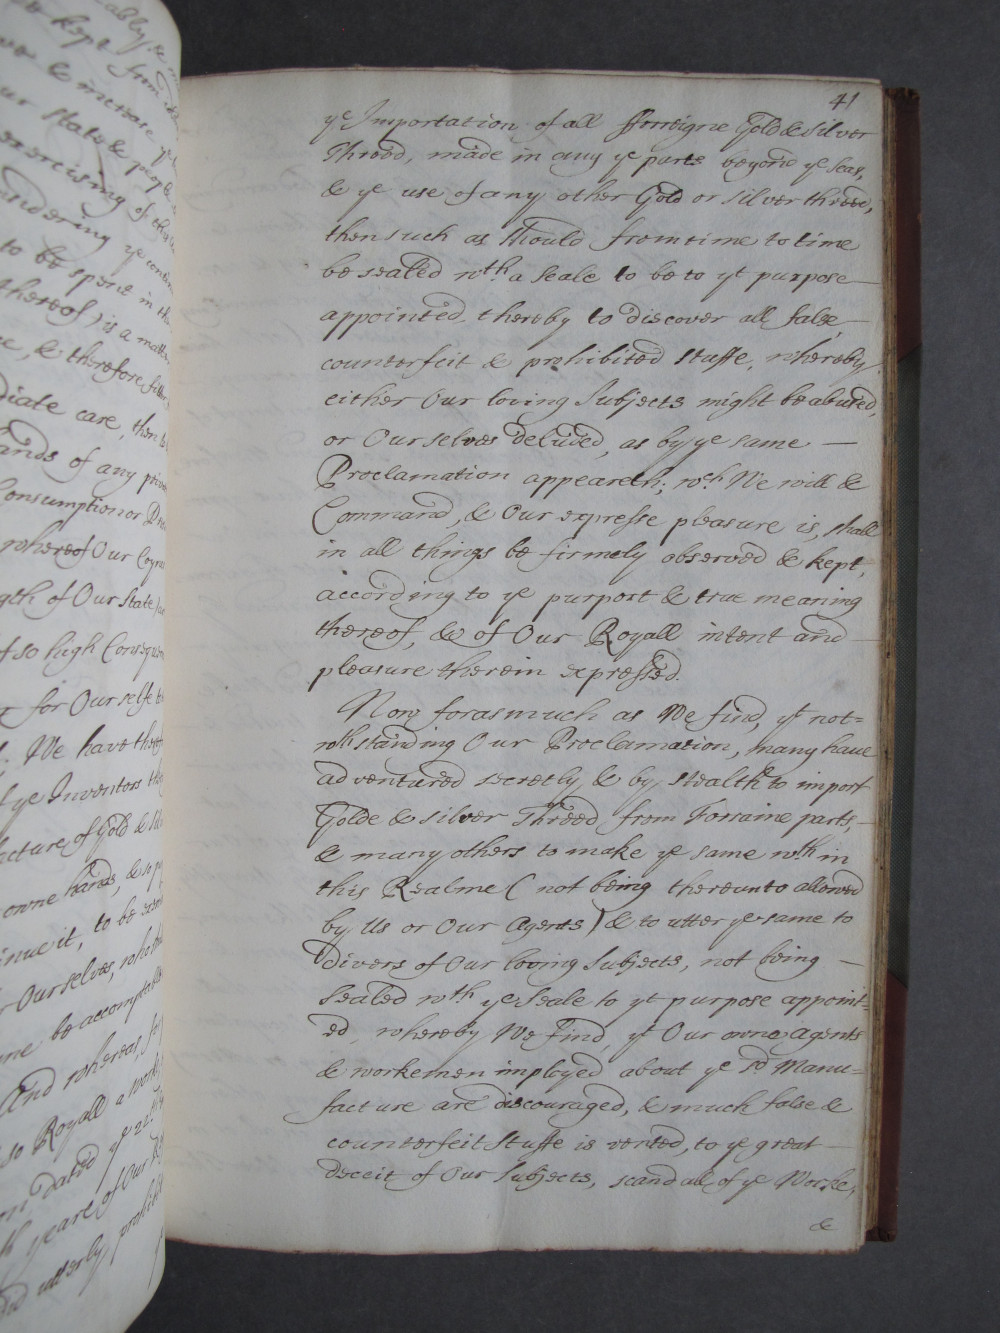 ably, &
kept from
& increase ye
ur State & people
exercising of
ndering ye
to be spent in
thereof) is a
e, & therefore
diate care, then
ands of any
Consumption or
whereof Our
gth of Our State
f so high
for Our selfe
; We have
f ye Inventors
acture of Gold &
owne hands, &
inue it, to be
r Ourselves,
me be accomptable
And whereas,
so Royall a
on, dated ye 22
yeare of Our
did utterly prohibit
41
ye Importation of all fforreigne Gold & Silver
Threed, made in any ye parts beyond ye Seas,
& ye use of any other Gold or silver threed,
then such as should from time to time
be sealed wth a Seale to be to yt purpose
appointed, thereby to discover all false,
counterfeit & prohibited stuffe, whereby
either Our loving Subjects might be abused,
or Ourselves deluded, as by ye same —
Proclamation appeareth; wch We will &
Command, & Our expresse pleasure is, shall
in all things be firmely observed & kept,
according to ye purport & true meaning
thereof, & of Our Royall intent and
pleasure therein expressed.
Now forasmuch as We find, yt not=
wthstanding Our Proclamation, many have
adventured secretly & by stealth to import
Golde & silver Threed from Forraine parts,
& many others to make ye same wthin
this Realme (not being thereunto allowed
by Us or Our Agents) & to utter ye same to
divers of Our loving Subjects, not being —
Sealed wth ye Seale to yt purpose appoint=
ed, whereby We find, yt Our owne Agents
& workemen imployed about ye sd Manu=
facture are discouraged, & much false &
counterfeit Stuffe is vented, to ye great
deceit of Our Subjects, scandall of ye Worke,
&